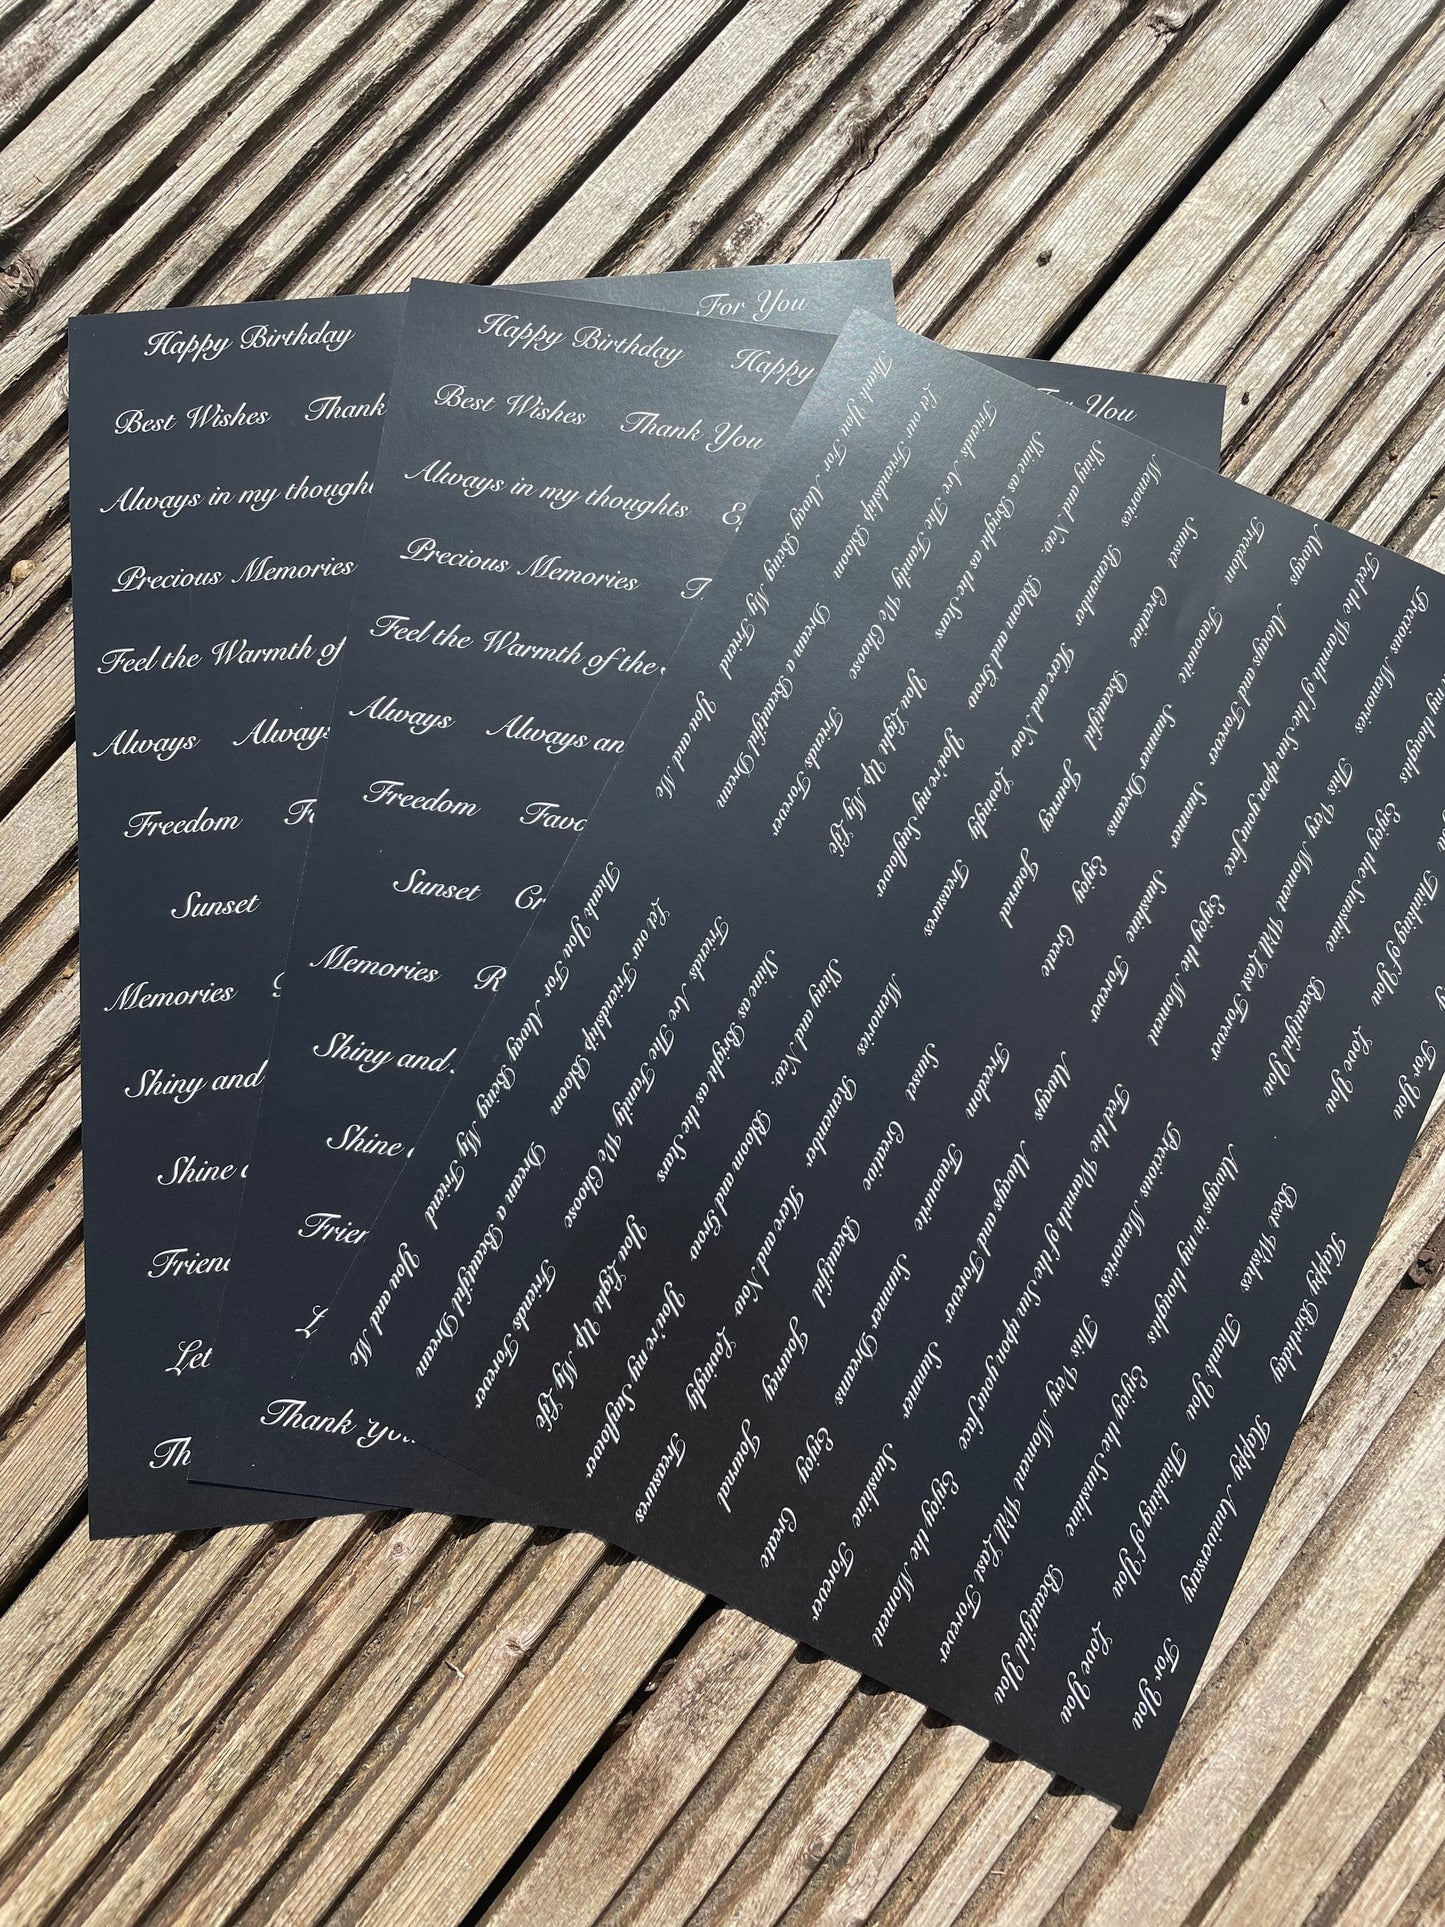 For You
Happy Birthday
Best Wishes Thank
Always in my though
Precious Memories
Feel the Warmth of
Always Always
Freedom
Sunset
Memories
Shiny and
Shine
Frien
Let
Th
Happy Birthday Happy
Best Wishes Thank You
Always in my thoughts
Precious Memories
Feel the Warmth of the
Always Always an
Freedom Favo
Sunset Cr
Memories R
Shiny and
Shine
Frien
Thank You
For You
my thoughts Thinking of You For You
Precious Memories Enjoy the Sunshine Love You
Feel the Warmth of the Sun upon your face This Very Moment Will Last Forever Beautiful You
Always Always and Forever Summer Enjoy the Moment
Freedom Favourite Summer Dreams Sunshine Forever
Sunset Creative Beautiful Journey Enjoy Create
Memories Remember Here and Now Lovingly Journal
Shiny and New. Bloom and Grow You're my Sunflower Treasures
Shine as Bright as the Stars You Light Up My Life
Friends Are The Family We Choose Friends Forever
Let our Friendship Bloom Dream a Beautiful Dream
Thank You For Always Being My Friend You and Me
Happy Birthday Happy Anniversary For You
Best Wishes Thank You Thinking of You Love You
Always in my thoughts Enjoy the Sunshine Beautiful You
Precious Memories This Very Moment Will Last Forever
Feel the Warmth of the Sun upon your face Enjoy the Moment
Always Always and Forever Summer Sunshine Forever
Freedom Favourite Summer Dreams Enjoy Create
Sunset Creative Beautiful Journey Journal
Memories Remember Here and Now Lovingly Treasures
Shiny and New. Bloom and Grow You're my Sunflower
Shine as Bright as the Stars You Light Up My Life
Friends Are The Family We Choose Friends Forever
Let our Friendship Bloom Dream a Beautiful Dream
Thank You For Always Being My Friend You and Me